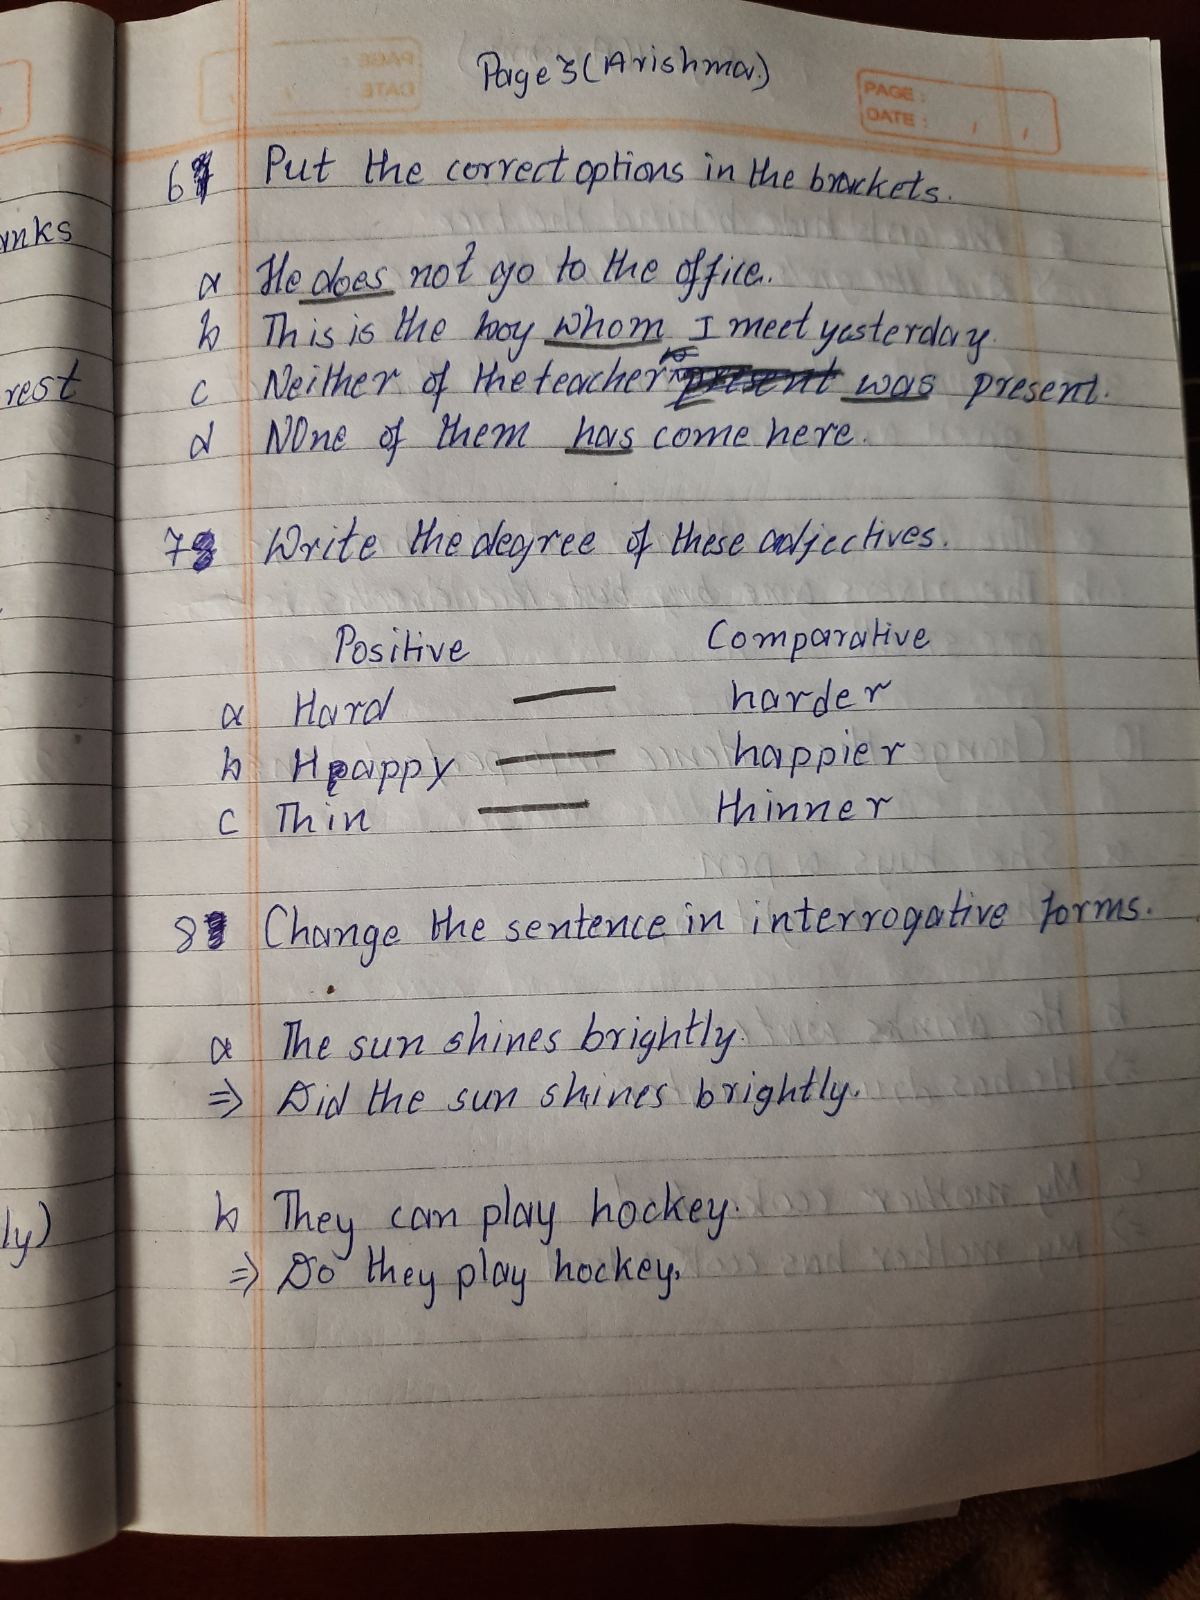 Page 3 (Arishma.)
PAGE :
DATE : / /
anks
rest
ly)
6 Put the correct options in the brackets.
a He does not go to the office.
b This is the boy whom I meet yesterday.
c Neither of the teacher present was present.
d NOne of them has come here.
7 Write the degree of these adjectives.
Positive Comparative
a Hard — harder
b Happy — happier
c Thin — thinner
8 Change the sentence in interrogative forms.
a The sun shines brightly.
⇒ Did the sun shines brightly.
b They can play hockey.
⇒ Do they play hockey.